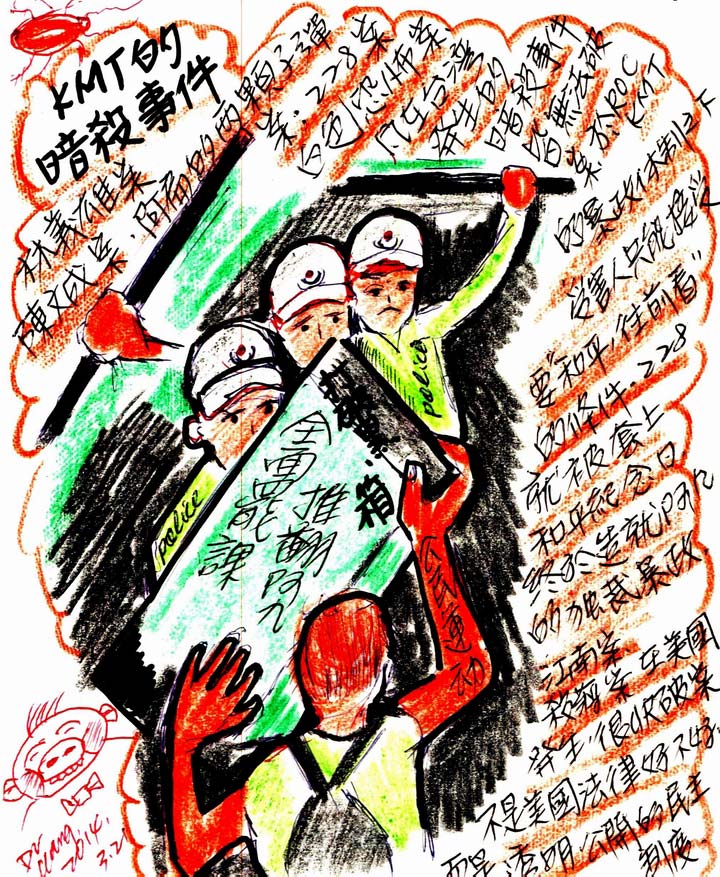 KMT的
暗殺事件
林義雄案
陳文成案.阿扁的兩顆子彈
案.228案
白色恐怖案
凡在台灣
發生的
暗殺事件
皆無法破
案於ROC
KMT
的暴政体制之下
受害人只能接受
要"和平,往前看"
的條件.228
就被套上
和平紀念日
終於造就阿九
的独裁暴政.
江南案
案 在美國
發生,很快破案
不是美國法律好不好
而是透明公開的民主
制度.
police
police
打破黑.箱
全面罷課
推翻阿九
公民運動
Dr
Chang
2014.